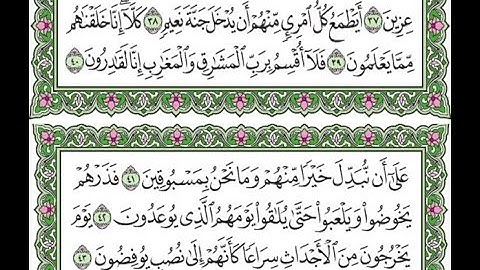 عِزِينَ ٣٧ أَيَطْمَعُ كُلُّ امْرِئٍ مِّنْهُمْ أَن يُدْخَلَ جَنَّةَ نَعِيمٍ ٣٨ كَلَّا إِنَّا خَلَقْنَاهُم
مِّمَّا يَعْلَمُونَ ٣٩ فَلَا أُقْسِمُ بِرَبِّ الْمَشَارِقِ وَالْمَغَارِبِ إِنَّا لَقَادِرُونَ ٤٠
عَلَىٰ أَن نُّبَدِّلَ خَيْرًا مِّنْهُمْ وَمَا نَحْنُ بِمَسْبُوقِينَ ٤١ فَذَرْهُمْ
يَخُوضُوا وَيَلْعَبُوا حَتَّىٰ يُلَاقُوا يَوْمَهُمُ الَّذِي يُوعَدُونَ ٤٢ يَوْمَ
يَخْرُجُونَ مِنَ الْأَجْدَاثِ سِرَاعًا كَأَنَّهُمْ إِلَىٰ نُصُبٍ يُوفِضُونَ ٤٣